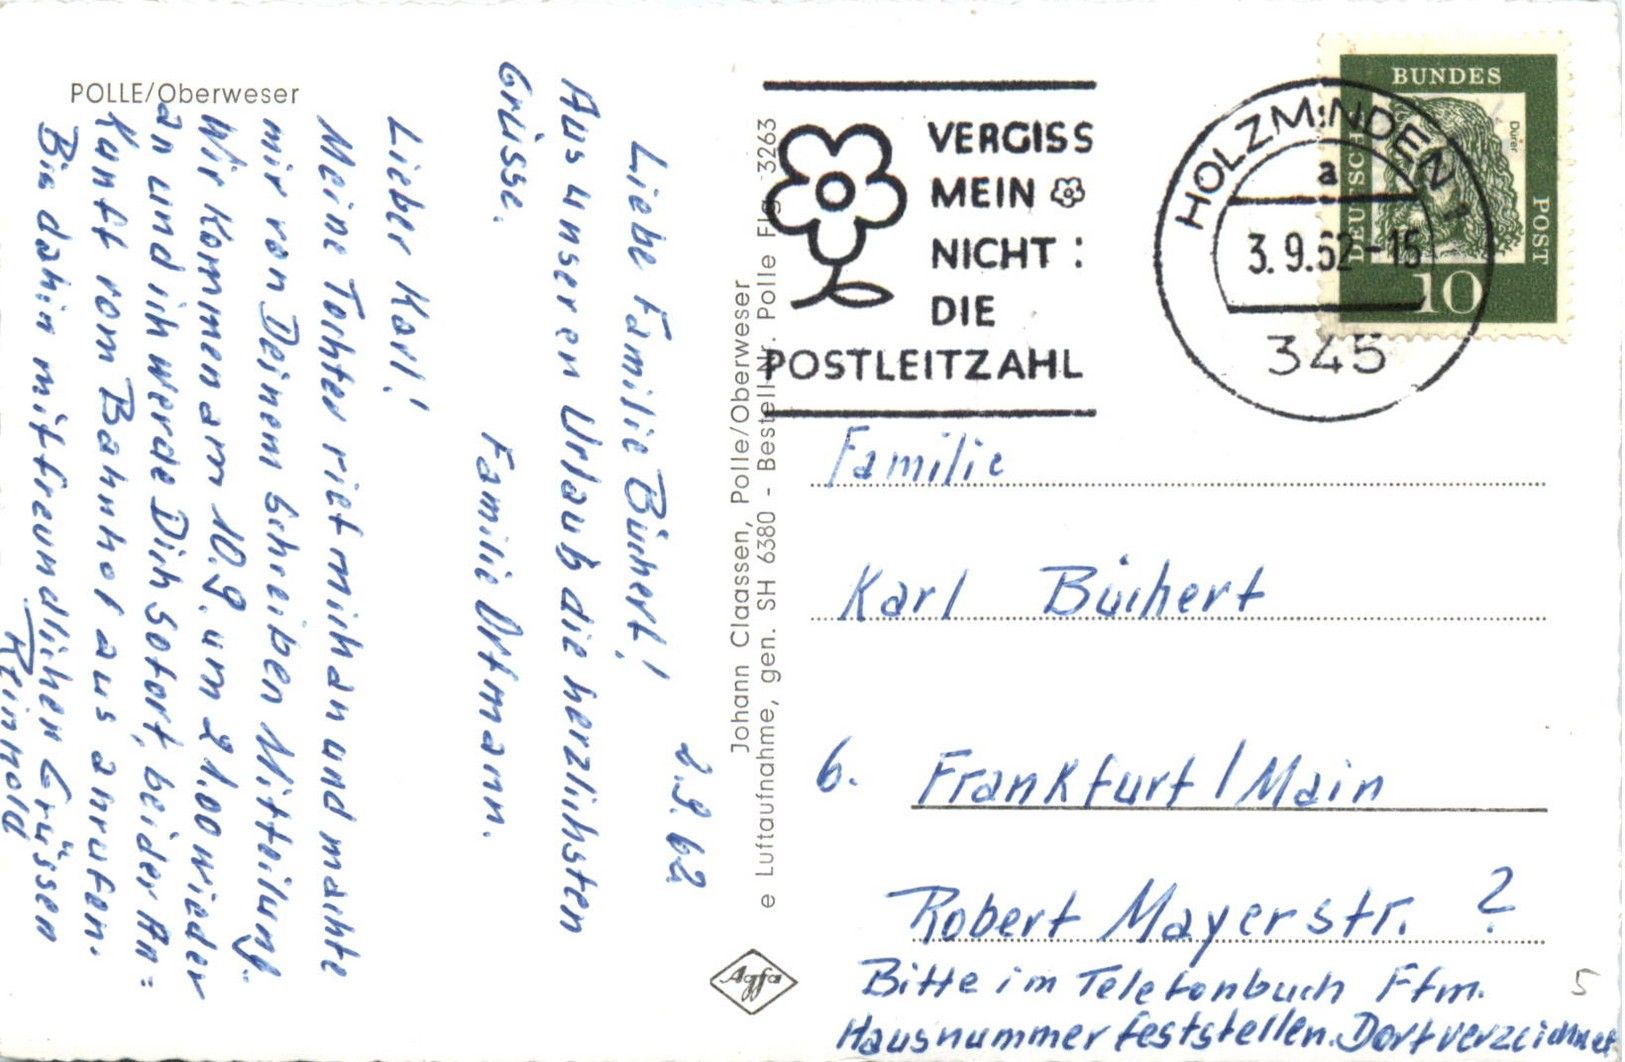 POLLE/Oberweser
2.9.62
Liebe Familie Büchert!
Aus unseren Urlaub die herzlichsten
Grüsse.
Familie Ortmann.
Lieber Karl!
Meine Tochter rief mich an und machte
mir von Deinem Schreiben Mitteilung.
Wir kommen am 10.9. um 21.00 wieder
an und ich werde Dich sofort, bei der An=
kunft vom Bahnhof aus anrufen.
Bin dahin mit freundlichen Grüssen
Reinhold
Johann Claassen, Polle/Oberweser
e Luftaufnahme, gen. SH 6380 - Bestell-Nr. Polle Flg 3263
Agfa
VERGISS
MEIN
NICHT:
DIE
POSTLEITZAHL
HOLZMINDEN 1
a
3.9.62-16
345
DEUTSCHE
BUNDES
POST
Dürer
10
Familie
Karl Büchert
6. Frankfurt/Main
Robert Mayerstr. ?
Bitte im Telefonbuch Ffm.
Hausnummer feststellen. Dort verzeichnet
5